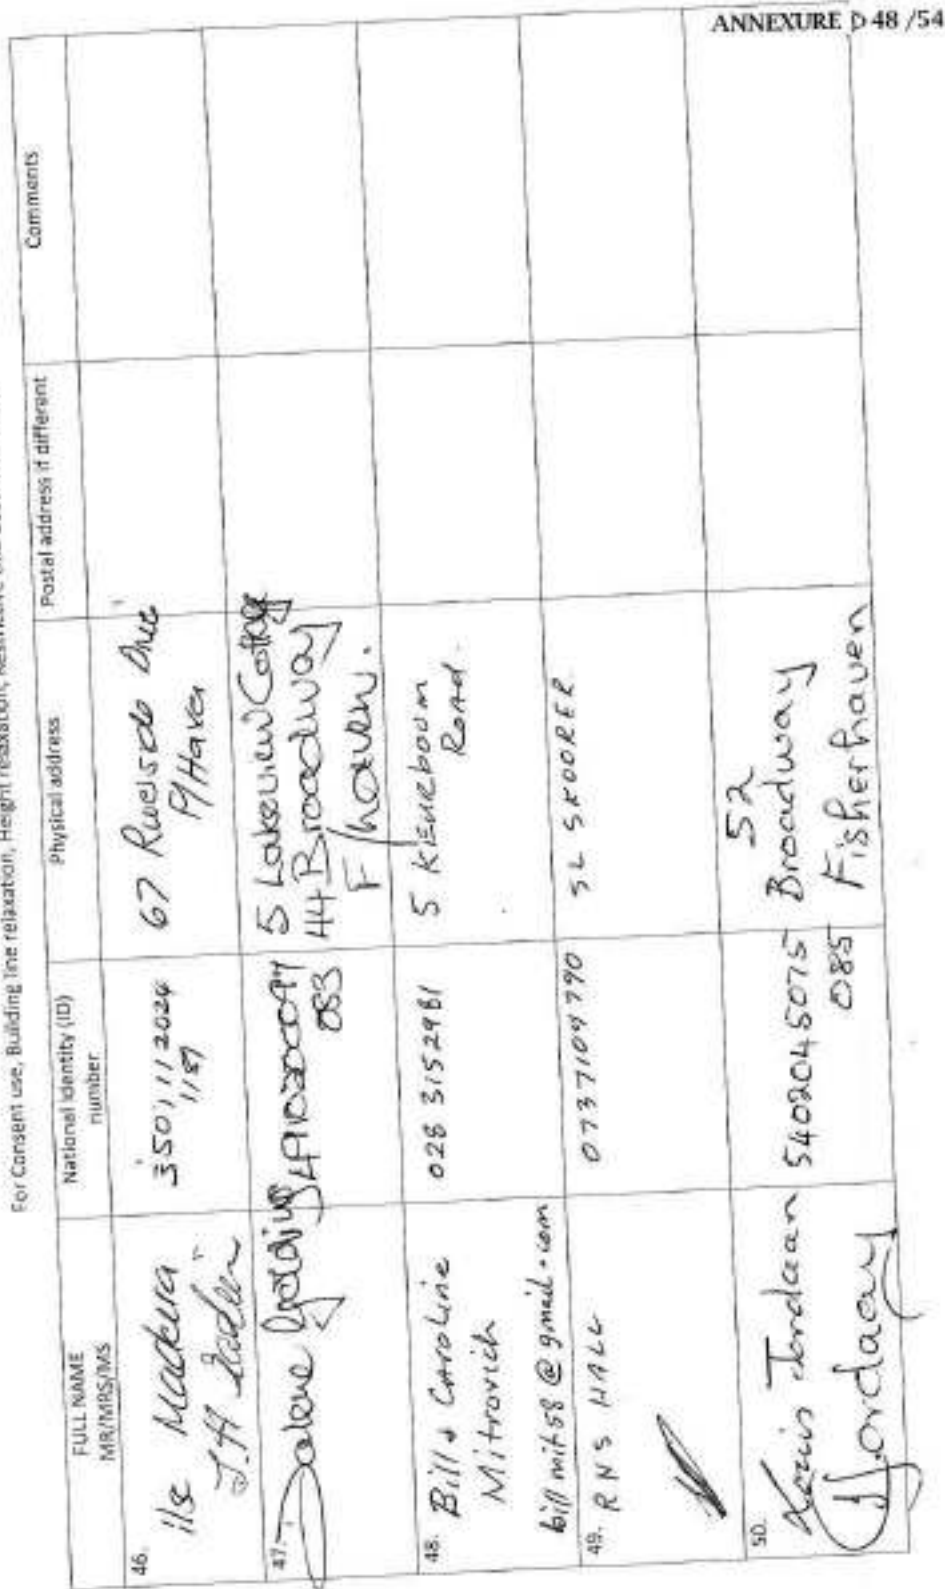 ANNEXURE D 48 /54
For Consent use, Building line relaxation, Height relaxation,
FULL NAME
MR/MRS/MS
National Identity (ID)
number
Physical address
Postal address if different
Comments
46.
Ilse
350111 2024
1187
67
P/Haven
47.
Golding
083
5 Lakeview Cottage
44 Broadway
F/haven.
48. Bill & Caroline
Mitrovich
billmit58@gmail.com
028 3152981
5 KEURboom
ROAD.
49. RNS HALL
0737109790
52 SKOORER
50.
Jordaan
5402045075
085
52
Broadway
Fisherhaven
Jordaan